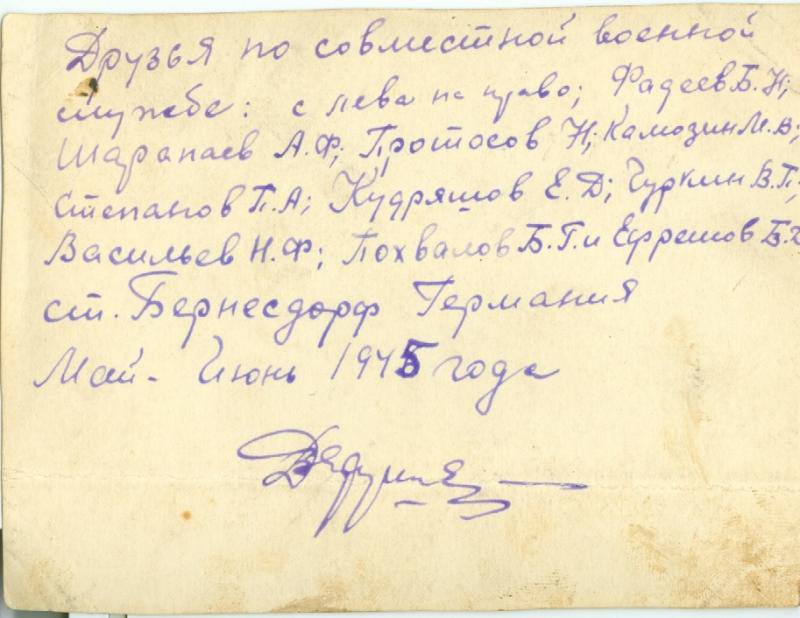 Друзья по совместной военной
службе: с лева на право; Фадеев Б. Н;
Шарапаев А.Ф; Протосов Н; Камозин М.В;
Степанов П.А; Кудряшов Е.Д; Чуркин В.П;
Васильев Н.Ф; Похвалов Б.Г. и Ефремов Б.
ст. Бернесдорф Германия
Май - Июнь 1945 года